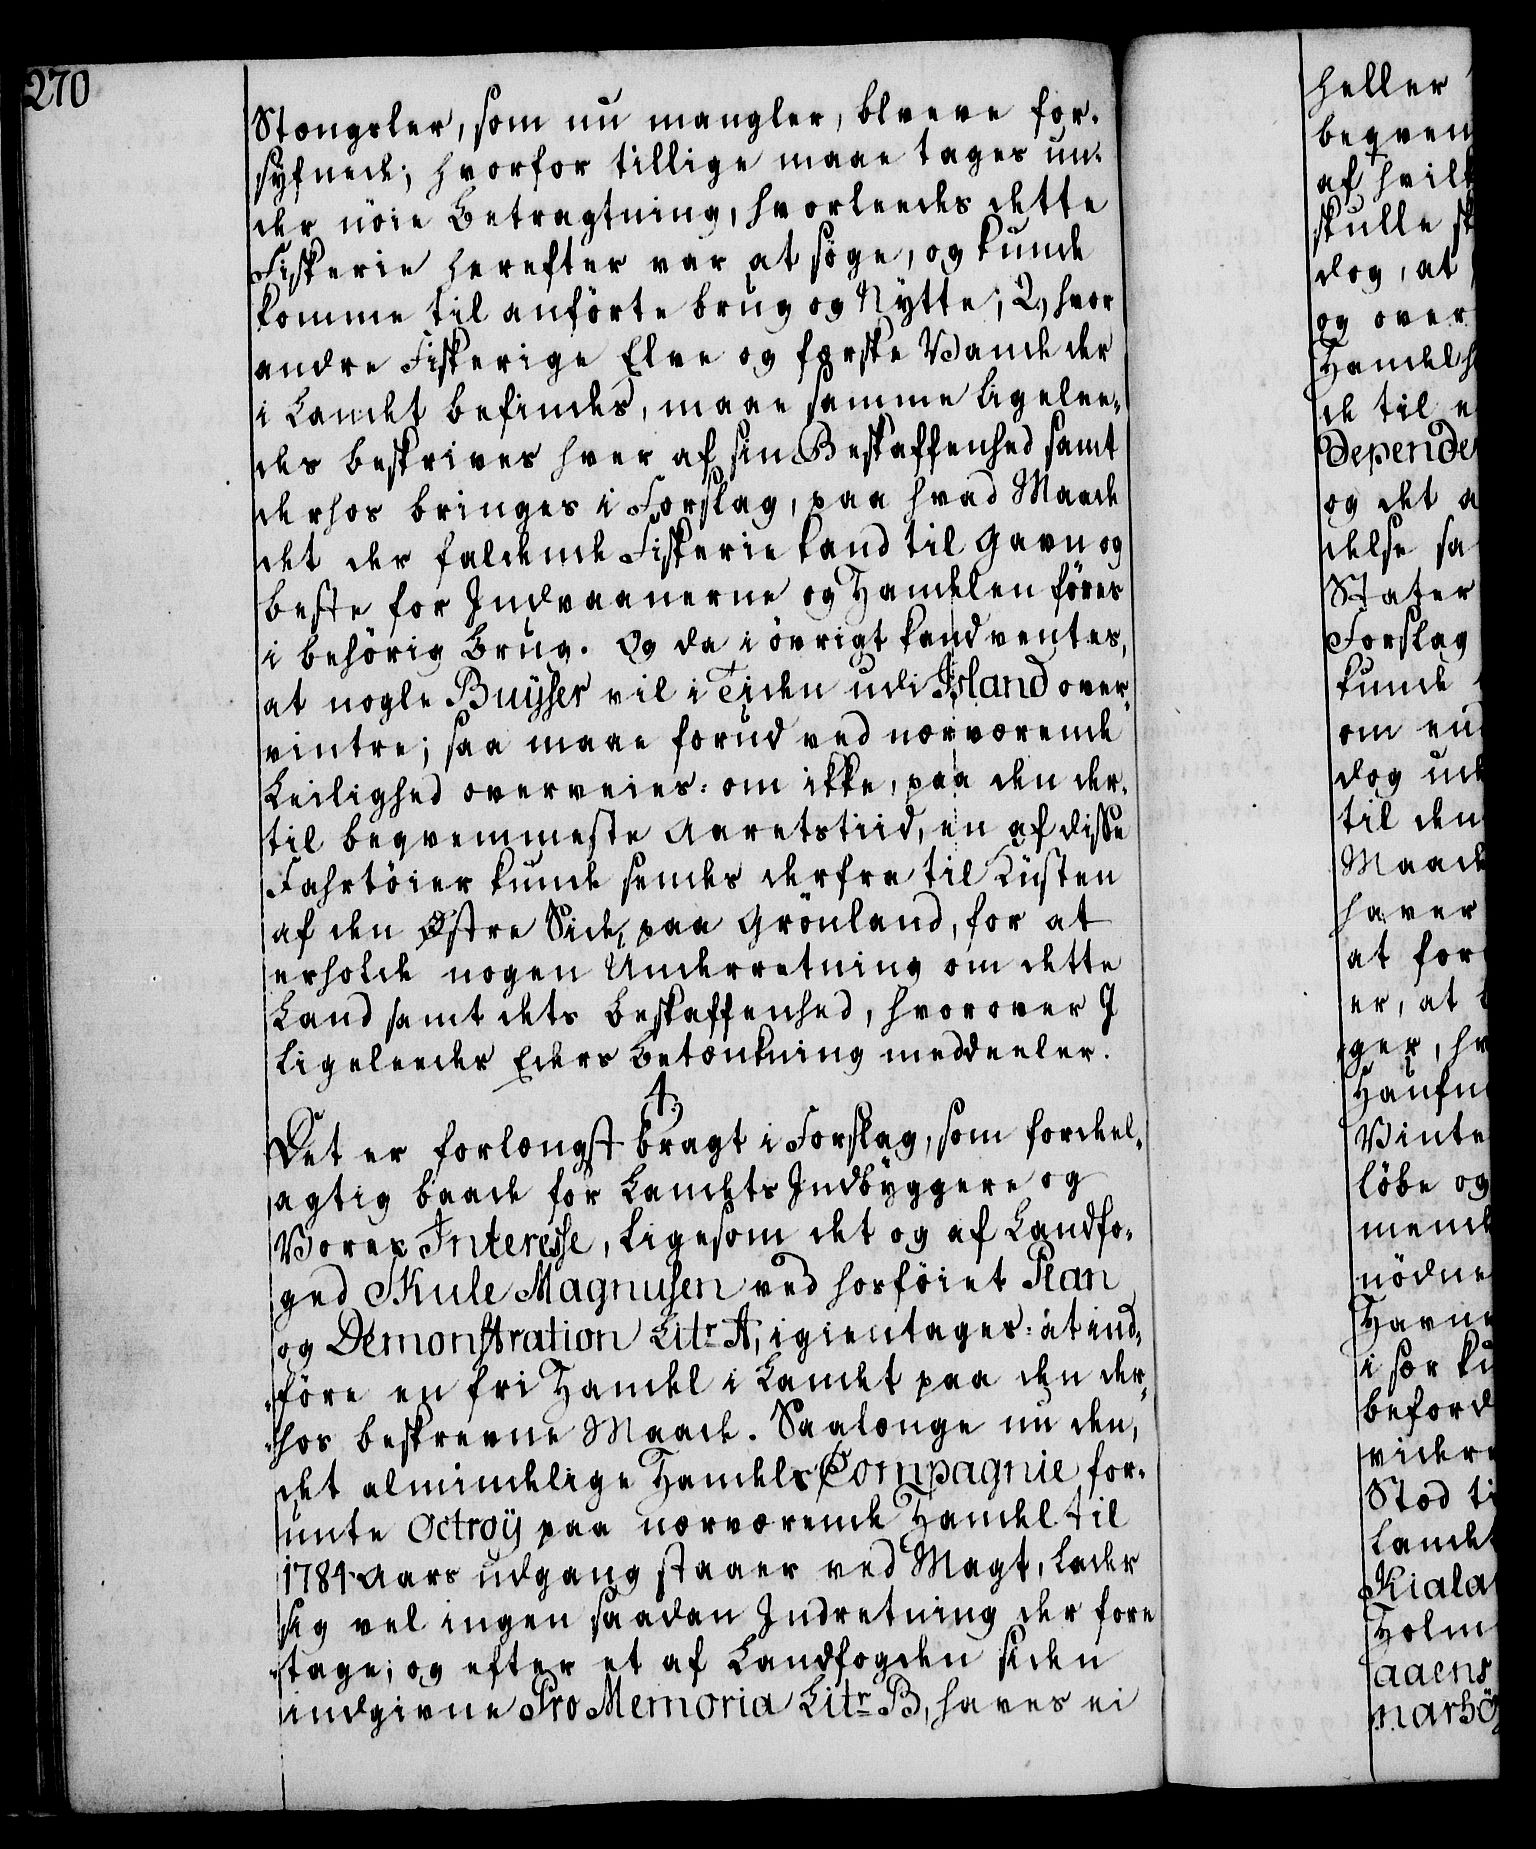 270
Stængsler, som nu mangler, bleve for-
synede; hvorfor tillige maae tages un-
der nöie Betragtning, hvorleedes dette
Fiskerie herefter var at söge, og kunde
komme til anförte brug og Nytte; 2, hvor
andre Fiskerige Elve og færske Vande der
i Landet befindes, maae samme ligelee-
des beskrives hver af sin Beskaffenhed samt
derhos bringes i Forslag, paa hvad Maade
det der faldende Fiskerie kand til Gavn og
beste for Indvaanerne og Handelen föres
i behörig Brug. Og da i övrigt kand ventes,
at nogle Buÿser vil i Tiden udi Island over-
vintre; saa maae forud ved nærværende
Leilighed overveies: om ikke, paa den der-
til beqvemmeste Aaretstiid, en af disse
Fahrtöier kunde sendes derfra til Küsten
af den Østre Side, paa Grönland, for at
erholde nogen Underretning om dette
Land samt dets beskaffenhed, hvorover I
ligeleedes Eders Betænkning meddeeler.
4,
Det er forlængst bragt i Forslag, som fordel-
agtig baade for Landets Indbyggere og
Vores Interesse, ligesom det og af Landfo-
ged Skule Magnusen ved hosföiet Plan
og Demonstration Litr A, igientages: at ind-
före en fri Handel i Landet paa den der-
hos beskrevne Maade. Saalænge nu den,
det almindelige Handels Compagnie for-
unte Octroÿ paa nærværende Handel til
1784 Aars udgang staaer ved Magt, lader
sig vel ingen saadan Indretning der fore
tage; og efter et af Landfogden siden
indgivne Pro Memoria Litr B, haves ei
heller
beqvem
af hvilk
skulle sk
dog, at
og over
Handelsh
de til e
Depende
og det a
delse sa
Stater
Forslag
kunde
om en
dog ud
til den
Maade
haver
at for
er, at
ger, hv
Haufn
Vinte
löbe og
mend
nödne
Havne
i sær ku
beford
videre
Stod ti
Landet
Kiala
Holm
aaens
narhö